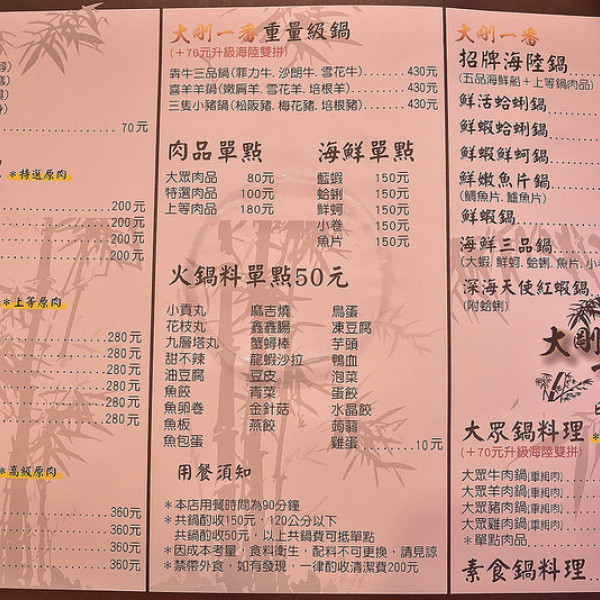 70元
＊特選原肉
200元
200元
200元
200元
＊上等原肉
280元
280元
280元
280元
280元
280元
280元
＊高級原肉
360元
360元
360元
360元
大剛一番 重量級鍋
(＋70元升級海陸雙拼)
犇牛三品鍋(菲力牛, 沙朗牛, 雪花牛)............430元
喜羊羊鍋(嫩肩羊, 雪花羊, 培根羊)............430元
三隻小豬鍋(松阪豬, 梅花豬, 培根豬)............430元
肉品單點
大眾肉品 80元
特選肉品 100元
上等肉品 180元
海鮮單點
藍蝦 150元
蛤蜊 150元
鮮蚵 150元
小卷 150元
魚片 150元
火鍋料單點50元
小貢丸 麻吉燒 鳥蛋
花枝丸 鑫鑫腸 凍豆腐
九層塔丸 蟹蟳棒 芋頭
甜不辣 龍蝦沙拉 鴨血
油豆腐 豆皮 泡菜
魚餃 青菜 蛋餃
魚卵卷 金針菇 水晶餃
魚板 燕餃 蒟蒻
魚包蛋 雞蛋............10元
用餐須知
＊本店用餐時間為90分鐘
＊共鍋酌收150元，120公分以下
共鍋酌收50元，以上共鍋費可抵單點
＊因成本考量，食料衛生，配料不可更換，請見諒
＊禁帶外食，如有發現，一律酌收清潔費200元
大剛一番
招牌海陸鍋
(五品海鮮船＋上等鍋肉品)
鮮活蛤蜊鍋
鮮蝦蛤蜊鍋
鮮蝦鮮蚵鍋
鮮嫩魚片鍋
(鯛魚片, 鱸魚片)
鮮蝦鍋
海鮮三品鍋
(大蝦, 鮮蚵, 蛤蜊, 魚片, 小
深海天使紅蝦鍋
(附蛤蜊)
大剛
大眾鍋料理
(＋70元升級海陸雙拼)
大眾牛肉鍋(重組肉)
大眾羊肉鍋(重組肉)
大眾豬肉鍋(重組肉)
大眾雞肉鍋(重組肉)
＊單點肉品
素食鍋料理